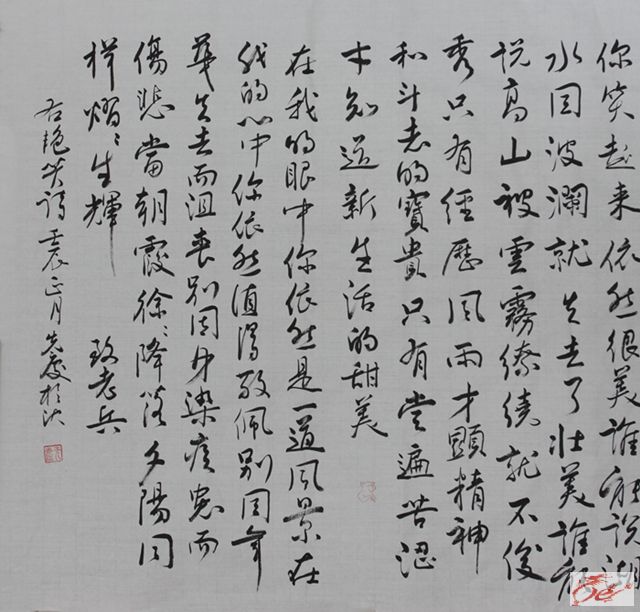 你笑起来依然很美谁能说湖
水因波澜就失去了壮美谁能
说高山被雲霧缭绕就不俊
秀只有經歷风雨才顯精神
和斗志的寶貴只有尝遍苦涩
才知道新生活的甜美
在我的眼中你依然是一道风景在
我的心中你依然值得敬佩别因年
華失去而沮喪别因身染疾患而
傷悲當朝霞徐々降落夕陽同
样熠々生輝
致老兵
右艳笑诗壬辰正月先慶於沈